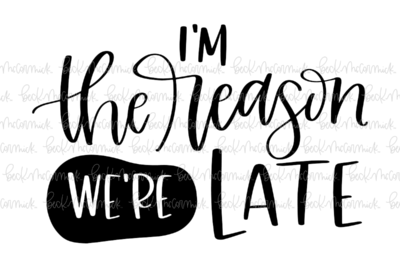 I'M
the reason
WE'RE LATE